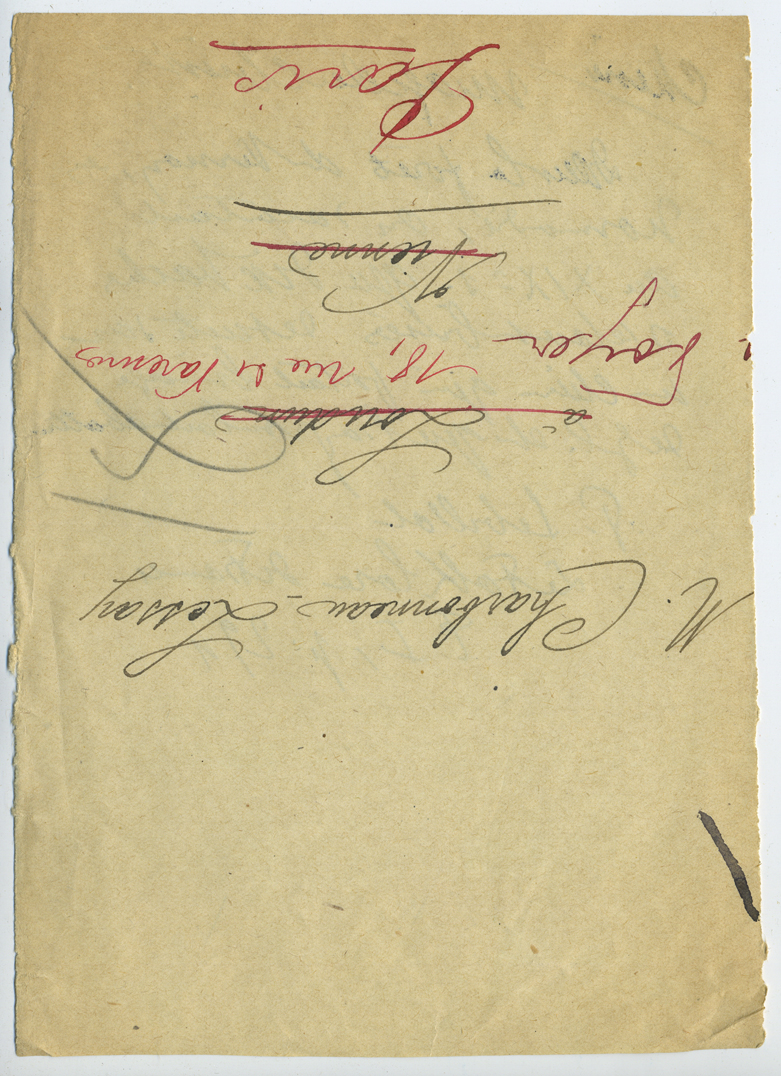 M. Charbonneau-Lassay
à Loudun
Foyer 18, rue de Varenne
Vienne
Paris